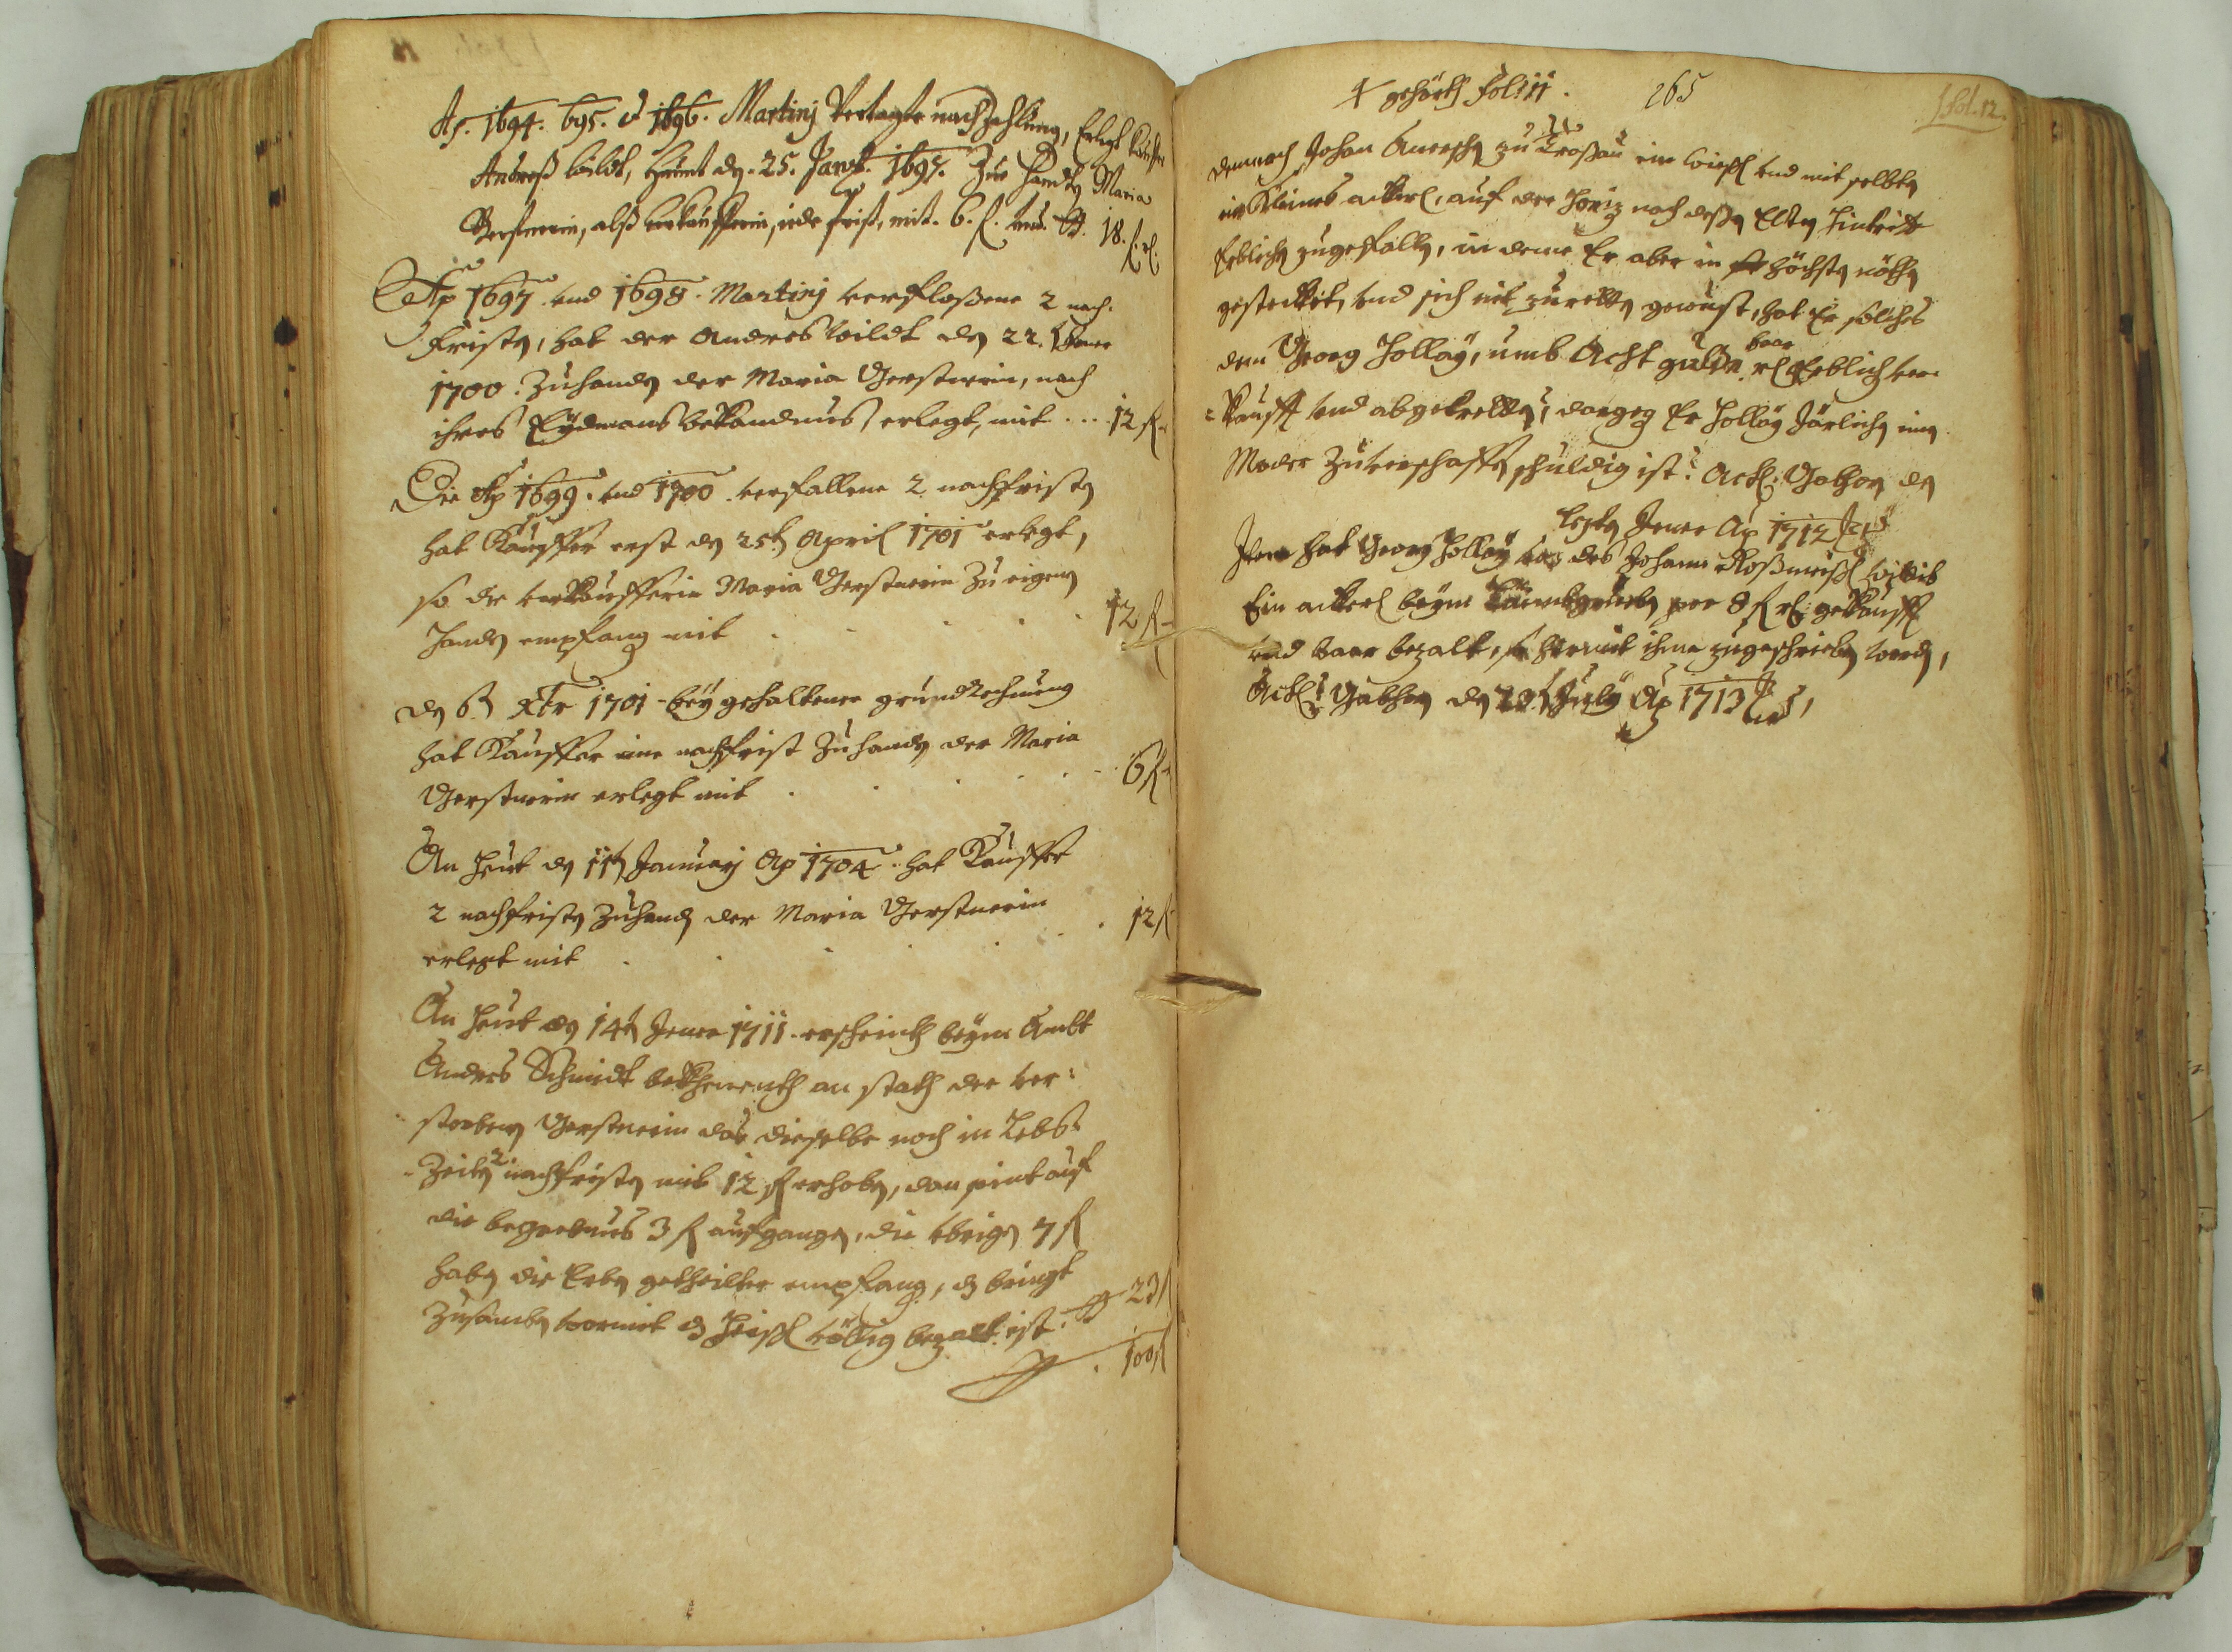 Ao. 1694. 695. et 1696. Martinj Vertagte nachzahlung, Erlegt Kauffer
Andreß Wildt, Heünt den. 25. Jan. 1697. Zue Handten Maria
Gerstnerin, alß verkaufferin, iede frist, mit. 6. f. 18. f.
Ao 1697 vnd 1698. Martinj verfloßene 2 nach-
fristen, hat der Andres Wildt den 22. Jener
1700. Zuhanden der Maria Gerstnerin, nach
ihres Eydmans bekandnus, erlegt, mit ... 12 f
Die Ao 1699. vnd 1700. verfallene 2 nachfristen
hat Kauffer erst den 25t April 1701 erlegt,
so die verkaufferin Maria Gerstnerin Zu eigenen
Handen empfang mit . . . . 12 f
den 6t xbr 1701 bey gehaltener grundrechnung
hat Kauffer eine nachfrist Zuhanden der Maria
Gerstnerin erlegt mit . . . . 6 f
An Heüt den 11t January Ao 1704. hat Kauffer
2 nachfristen Zuhanden der Maria Gerstnerin
erlegt mit . . . . 12 f
An Heüt den 14t Jener 1711. erscheinth beym Ambt
Andres Schmidt an stath der ver-
storbenen Gerstnerin das dieselbe noch in Lebs-
Zeiten 2 nachfristen mit 12 f erhoben, dan seint auf
die begrebnus 3 f aufgangen, die vbrigen 7 f
haben die Erben getheilter empfang, bringt
Zusamben wormit Heisl völlig bezalt ist 23 f
100 f
gehörth Fol: 11. 265
fol. 12.
Demnach Johan zu ein wiesl vnd mit selben
ein Kleines ackerl, auf der nach deßen Eltern hintritt
Erblichen zugefallen, in deme Er aber in höchsten nöthen
gestecket, vnd sich nit zuretten gewust, hat Er solches
dem Georg Hollay, umb Acht gulden baar Erblich ver-
kaufft vnd abgetretten, dargegen Er Hollay Järlichen einen
Mader Zuverschaffen schuldig ist. Act. Gathon den
Jener Ao 1712
Item hat Georg Hollay von des Johann wittib
Ein ackerl beym per 8 f gekaufft
vnd baar bezalt, hiemit ihme zugeschrieben worden,
Act. Gathon den July Ao 1713